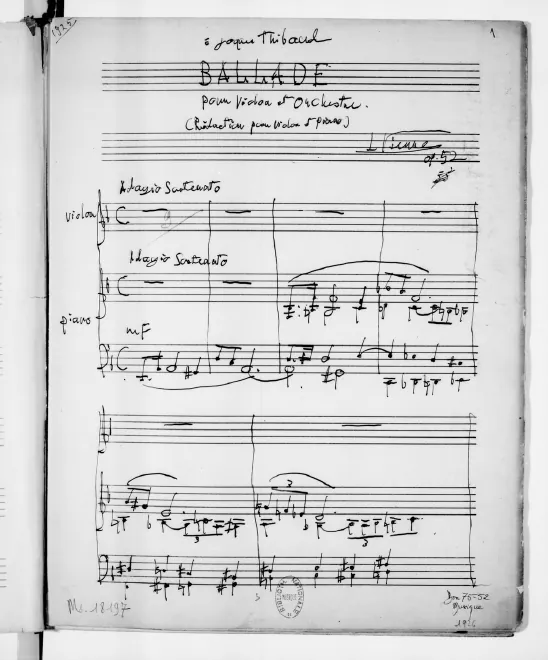 1925
1
à Jacques Thibaud
BALLADE
pour Violon et Orchestre.
(Réduction pour Violon et piano)
L Vierne
op. 52
Adagio Sostenuto
violon
Adagio Sostenuto
piano
mF
3
3
3
Ms. 18197
Don 75-52
Musique